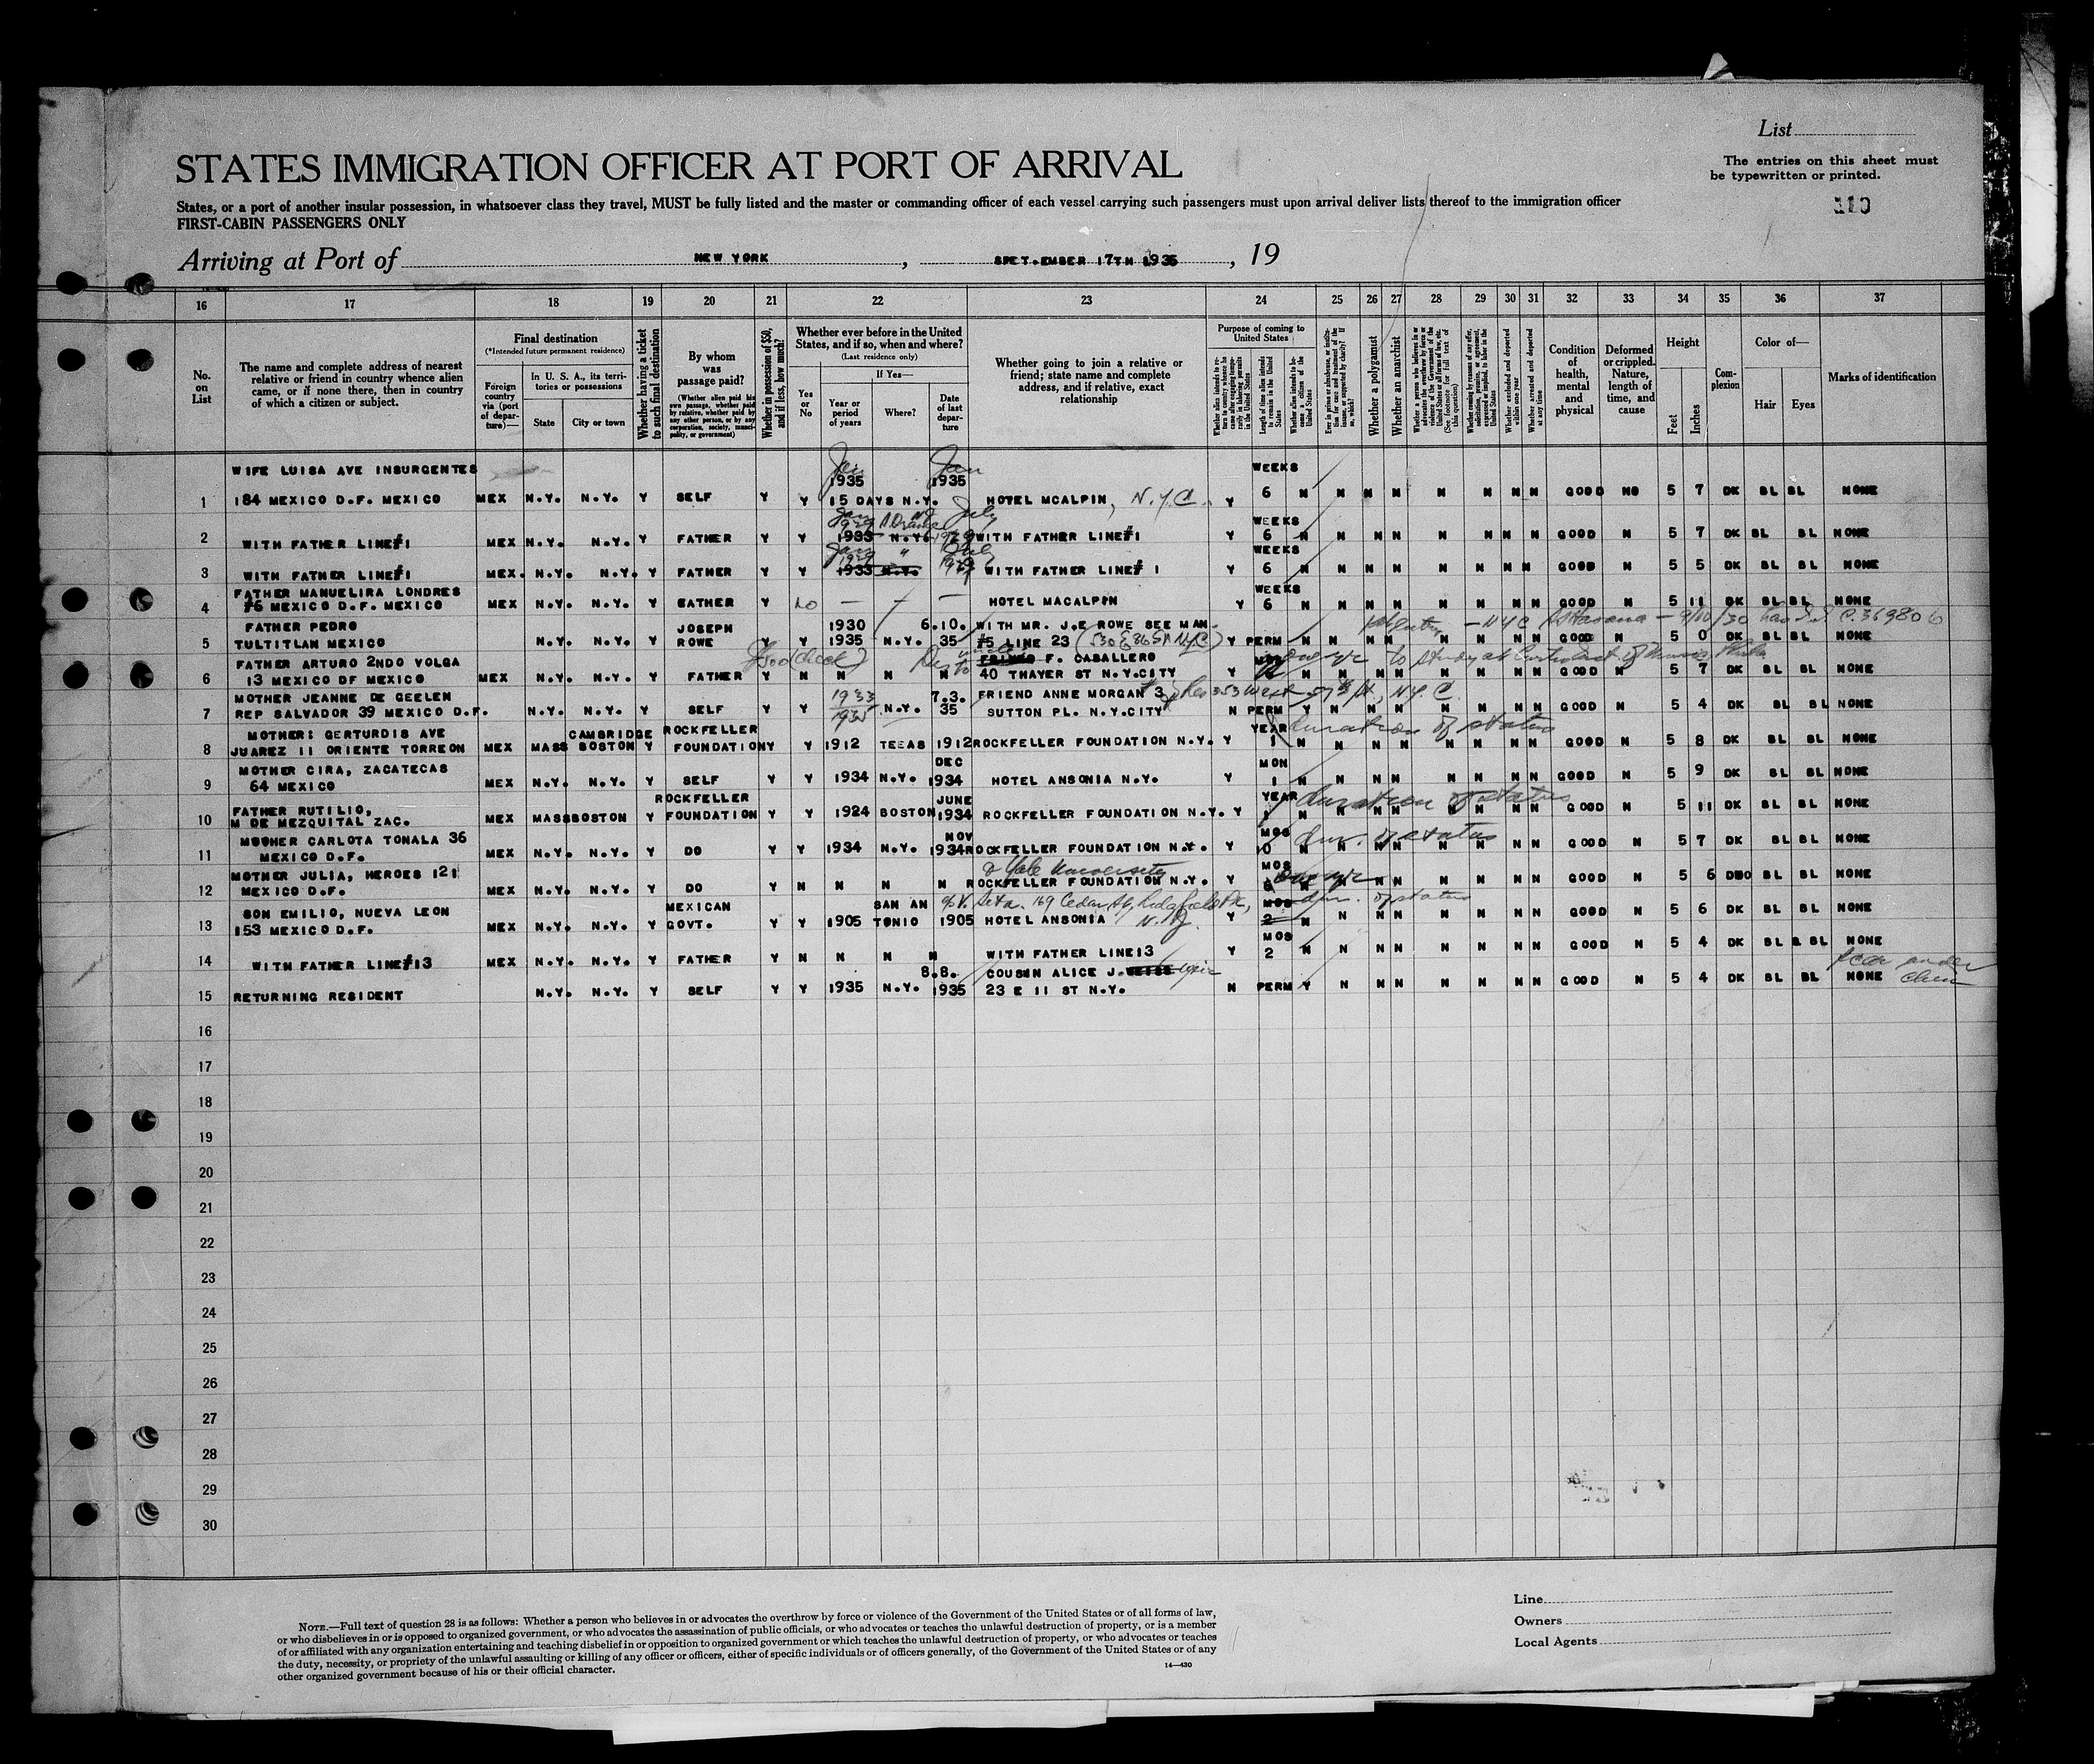 List
STATES IMMIGRATION OFFICER AT PORT OF ARRIVAL
The entries on this sheet must
be typewritten or printed.
States, or a port of another insular possession, in whatsoever class they travel, MUST be fully listed and the master or commanding officer of each vessel carrying such passengers must upon arrival deliver lists thereof to the immigration officer
FIRST-CABIN PASSENGERS ONLY
110
Arriving at Port of NEW YORK, SPET.EMBER 17TH 1935, 19
16 17 18 19 20 21 22 23 24 25 26 27 28 29 30 31 32 33 34 35 36 37
No. on List
The name and complete address of nearest relative or friend in country whence alien came, or if none there, then in country of which a citizen or subject.
Final destination
(*Intended future permanent residence)
Foreign country via (port of departure)—
In U. S. A., its territories or possessions
State City or town
Whether having a ticket to such final destination
By whom was passage paid?
(Whether alien paid his own passage, whether paid by relative, whether paid by any other person, or by any corporation, society, municipality, or government)
Whether in possession of $50, and if less, how much?
Whether ever before in the United States, and if so, when and where?
(Last residence only)
Yes or No
If Yes—
Year or period of years Where? Date of last departure
Whether going to join a relative or friend; state name and complete address, and if relative, exact relationship
Purpose of coming to United States
Whether a polygamist
Whether an anarchist
Condition of health, mental and physical
Deformed or crippled. Nature, length of time, and cause
Height
Feet Inches
Complexion
Color of—
Hair Eyes
Marks of identification
WIFE LUISA AVE INSURGENTES Jan 1935 Jan 1935 WEEKS
1 184 MEXICO D.F. MEXICO MEX N.Y. N.Y. Y SELF Y Y 15 DAYS N.Y. HOTEL MCALPIN, N.Y.C. Y 6 N N N N N N N N GOOD NO 5 7 DK BL BL NONE
WEEKS
2 WITH FATHER LINE#1 MEX N.Y. N.Y. Y FATHER Y Y 1933 N.Y. WITH FATHER LINE#1 Y 6 N N N N N N N N GOOD N 5 7 DK BL BL NONE
WEEKS
3 WITH FATHER LINE#1 MEX. N.Y. N.Y. Y FATHER Y Y 1933 N.Y. WITH FATHER LINE# 1 Y 6 N N N N N N N N GOOD N 5 5 DK BL BL NONE
FATHER MANUELIRA LONDRES WEEKS
4 #6 MEXICO D.F. MEXICO MEX N.Y. N.Y. Y GATHER Y No — — — HOTEL MACALPIN Y 6 N N N N N N N N GOOD N 5 11 DK BL BL NONE
FATHER PEDRO JOSEPH 1930 6.10. WITH MR. J.E ROWE SEE MAN.
5 TULTITLAN MEXICO N.Y. N.Y. Y ROWE Y Y 1935 N.Y. 35 #5 LINE 23 (530 E 86 St NYC) Y PERM N N N N N N N N GOOD N 5 0 DK BL BL NONE
FATHER ARTURO 2NDO VOLGA $500 (check) F. CABALLERO
6 13 MEXICO DF MEXICO MEX N.Y. N.Y. Y FATHER Y N N N N 40 THAYER ST N.Y.CITY Y N N N N N N N N GOOD N 5 7 DK BL BL NONE
MOTHER JEANNE DE GEELEN 1933 7.3. FRIEND ANNE MORGAN #3
7 REP SALVADOR 39 MEXICO D.F. N.Y. N.Y. Y SELF Y Y 1935 N.Y. 35 SUTTON PL. N.Y.CITY N PERM Y N N N N N N N GOOD N 5 4 DK BL BL NONE
MOTHER: GERTURDIS AVE CAMBRIDGE ROCKFELLER YEAR duration of status
8 JUAREZ 11 ORIENTE TORREON MEX MASS BOSTON Y FOUNDATION Y Y 1912 TEEAS 1912 ROCKFELLER FOUNDATION N.Y. Y 1 N N N N N N N N GOOD N 5 8 DK BL BL NONE
MOTHER CIRA, ZACATECAS DEC MON
9 64 MEXICO MEX N.Y. N.Y. Y SELF Y Y 1934 N.Y. 1934 HOTEL ANSONIA N.Y. Y 1 N N N N N N N N GOOD N 5 9 DK BL BL NONE
FATHER RUTILIO, ROCKFELLER JUNE YEAR duration of status
10 M DE MEZQUITAL ZAC. MEX MASS BOSTON Y FOUNDATION Y Y 1924 BOSTON 1934 ROCKFELLER FOUNDATION N.Y. Y 1 N N N N N N N N GOOD N 5 11 DK BL BL NONE
MOTHER CARLOTA TONALA 36 NOV MOS dur. of status
11 MEXICO D.F. MEX N.Y. N.Y. Y DO Y Y 1934 N.Y. 1934 ROCKFELLER FOUNDATION N.Y. Y 10 N N N N N N N N GOOD N 5 7 DK BL BL NONE
MOTHER JULIA, HEROES 121 Yale University MOS
12 MEXICO D.F. MEX N.Y. N.Y. Y DO Y N N N N ROCKFELLER FOUNDATION N.Y. Y 6 N N N N N N N N GOOD N 5 6 BL BL NONE
SON EMILIO, NUEVA LEON MEXICAN SAN AN 169 Cedar St, Ridgefield Pk, MOS dur. of status
13 153 MEXICO D.F. MEX N.Y. N.Y. Y GOVT. Y Y 1905 TONIO 1905 HOTEL ANSONIA N.J. Y 2 N N N N N N N N GOOD N 5 6 DK BL BL NONE
MOS
14 WITH FATHER LINE#13 MEX N.Y. N.Y. Y FATHER Y N N N N WITH FATHER LINE13 Y 2 N N N N N N N N GOOD N 5 4 DK BL BL NONE
8.8. COUSIN ALICE J. scar under chin
15 RETURNING RESIDENT N.Y. N.Y. Y SELF Y Y 1935 N.Y. 1935 23 E 11 ST N.Y. N PERM Y N N N N N N N GOOD N 5 4 DK BL BL NONE
16
17
18
19
20
21
22
23
24
25
26
27
28
29
30
NOTE.—Full text of question 28 is as follows: Whether a person who believes in or advocates the overthrow by force or violence of the Government of the United States or of all forms of law,
or who disbelieves in or is opposed to organized government, or who advocates the assassination of public officials, or who advocates or teaches the unlawful destruction of property, or is a member
of or affiliated with any organization entertaining and teaching disbelief in or opposition to organized government or which teaches the unlawful destruction of property, or who advocates or teaches
the duty, necessity, or propriety of the unlawful assaulting or killing of any officer or officers, either of specific individuals or of officers generally, of the Government of the United States or of any
other organized government because of his or their official character.
14—430
Line
Owners
Local Agents